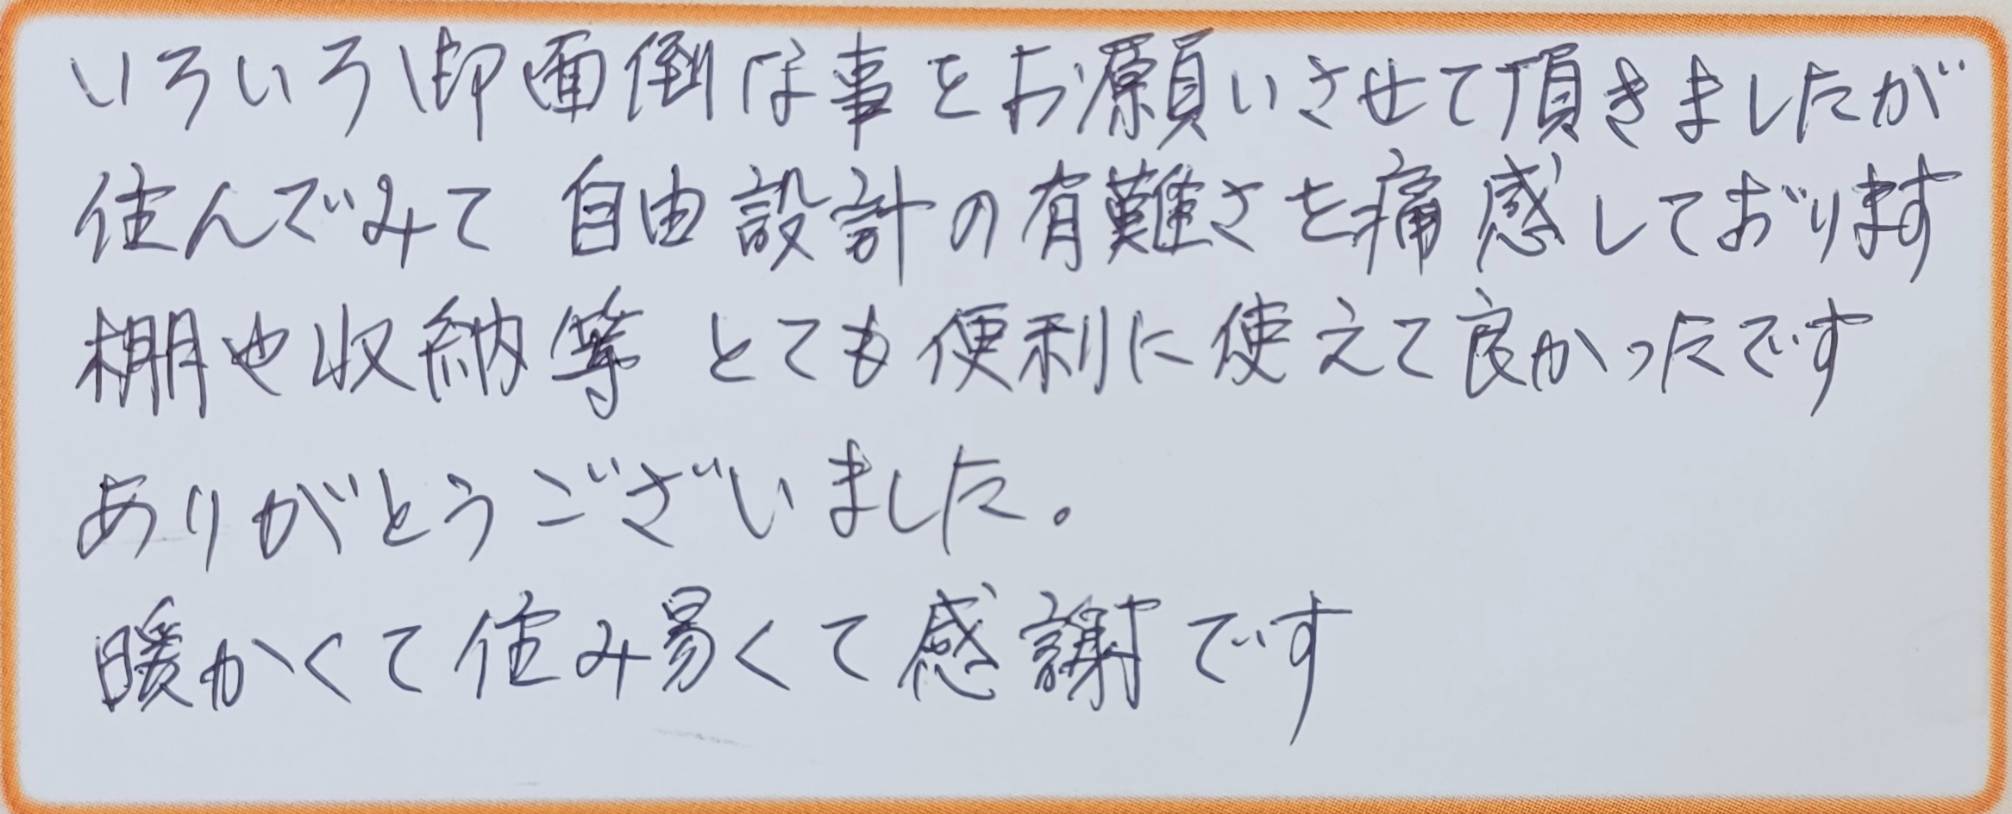 いろいろ御面倒な事をお願いさせて頂きましたが
住んでみて 自由設計の有難さを痛感しております
棚や収納等 とても便利に使えて良かったです
ありがとうございました。
暖かくて住み易くて感謝です